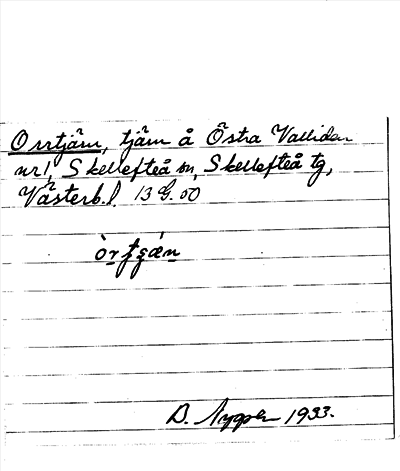 Orrtjärn, tjärn å Östra Valliden
nr 1, Skellefteå sn, Skellefteå tg,
Västerb. l. 13 G. 00
1933.